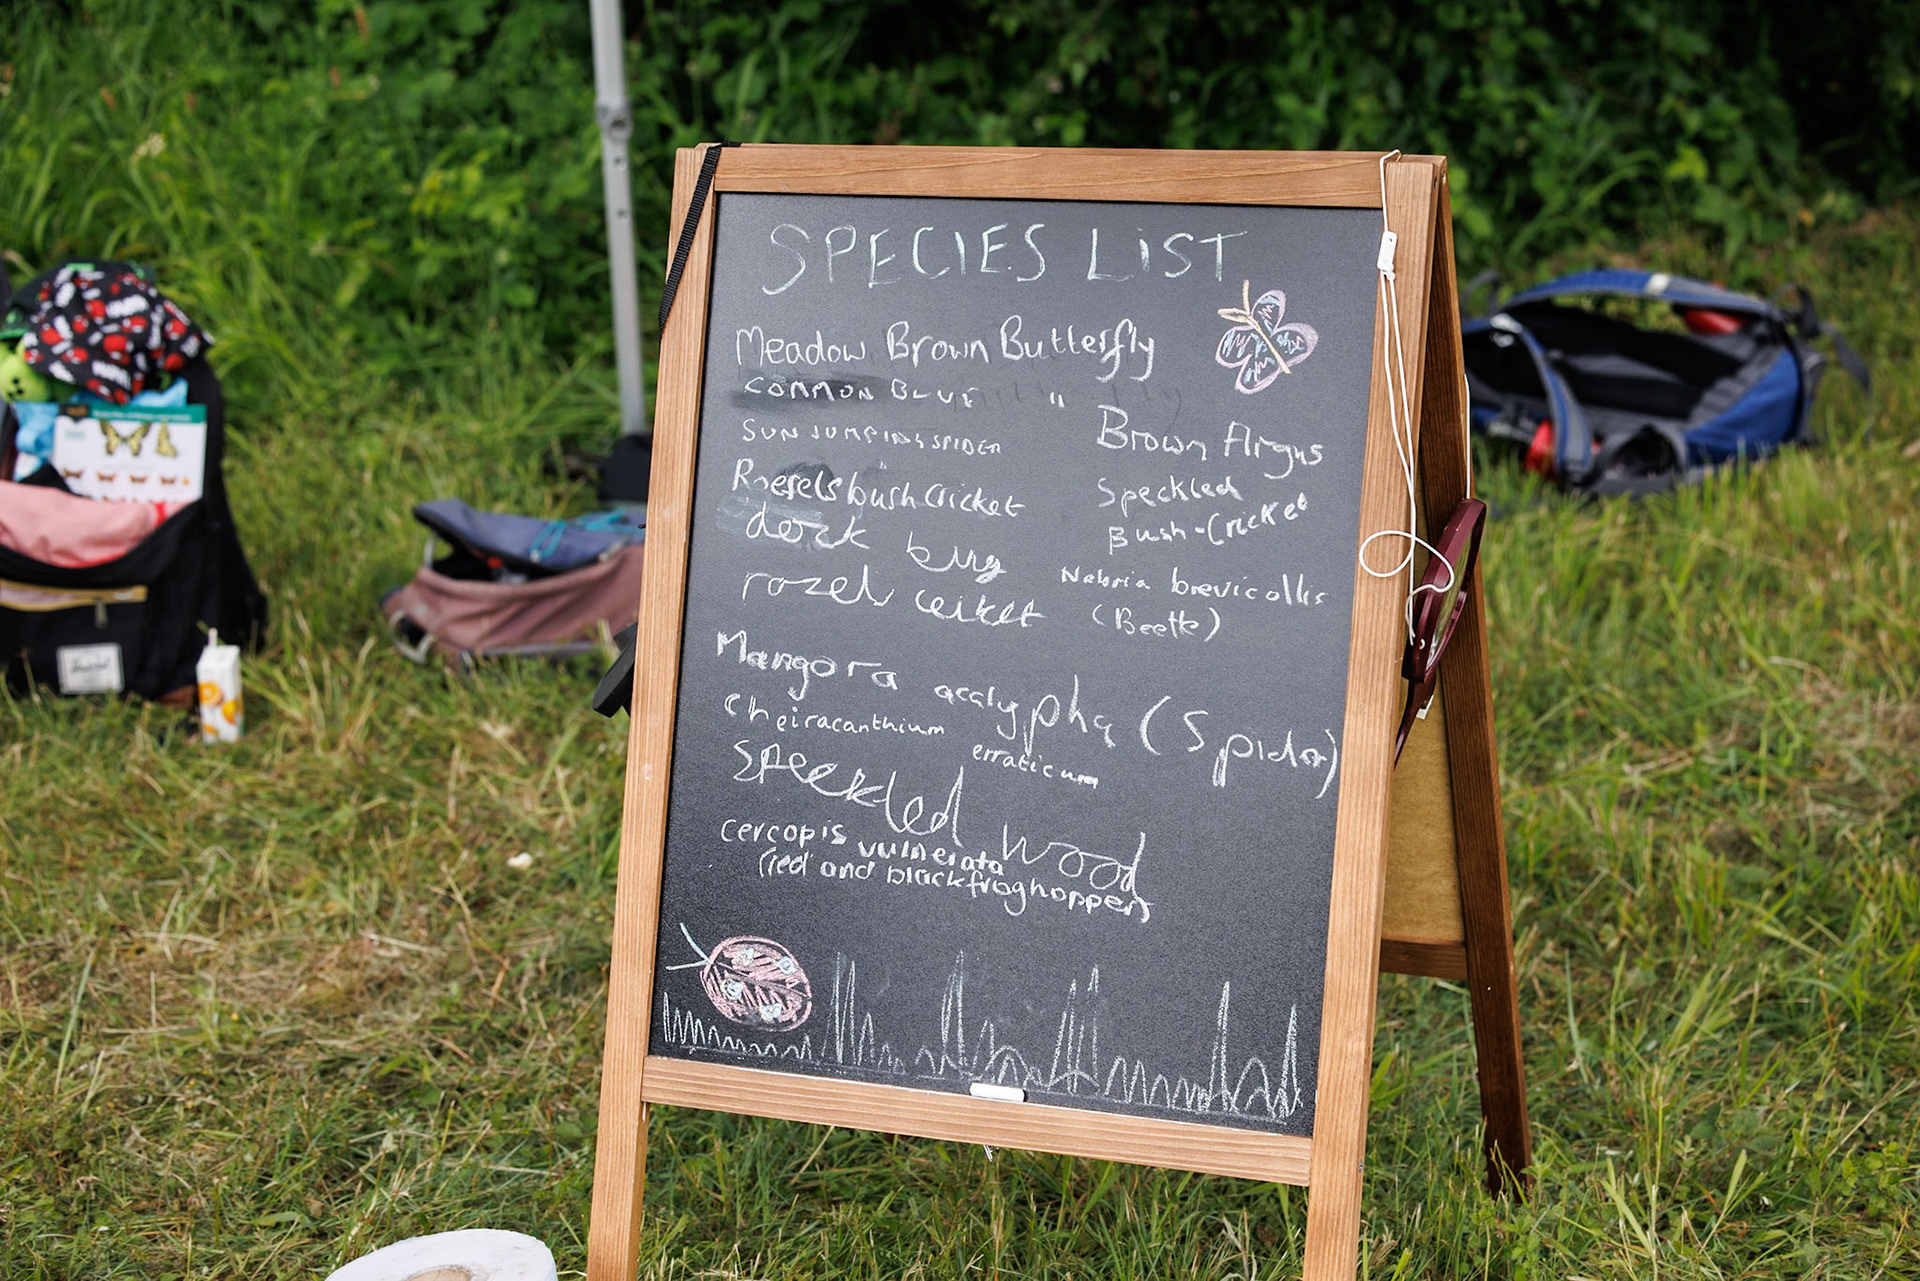 SPECIES LIST
Meadow Brown Butterfly
COMMON BLUE "
SUN JUMPING SPIDER
Roesels bush Cricket
dock bug
rozel criket
Brown Argus
Speckled
Bush-Cricket
Nebria brevicollis
(Beetle)
Mangora acalypha (Spider)
Cheiracanthium
erraticum
Speckled wood
Cercopis vulnerata
(red and black froghopper)